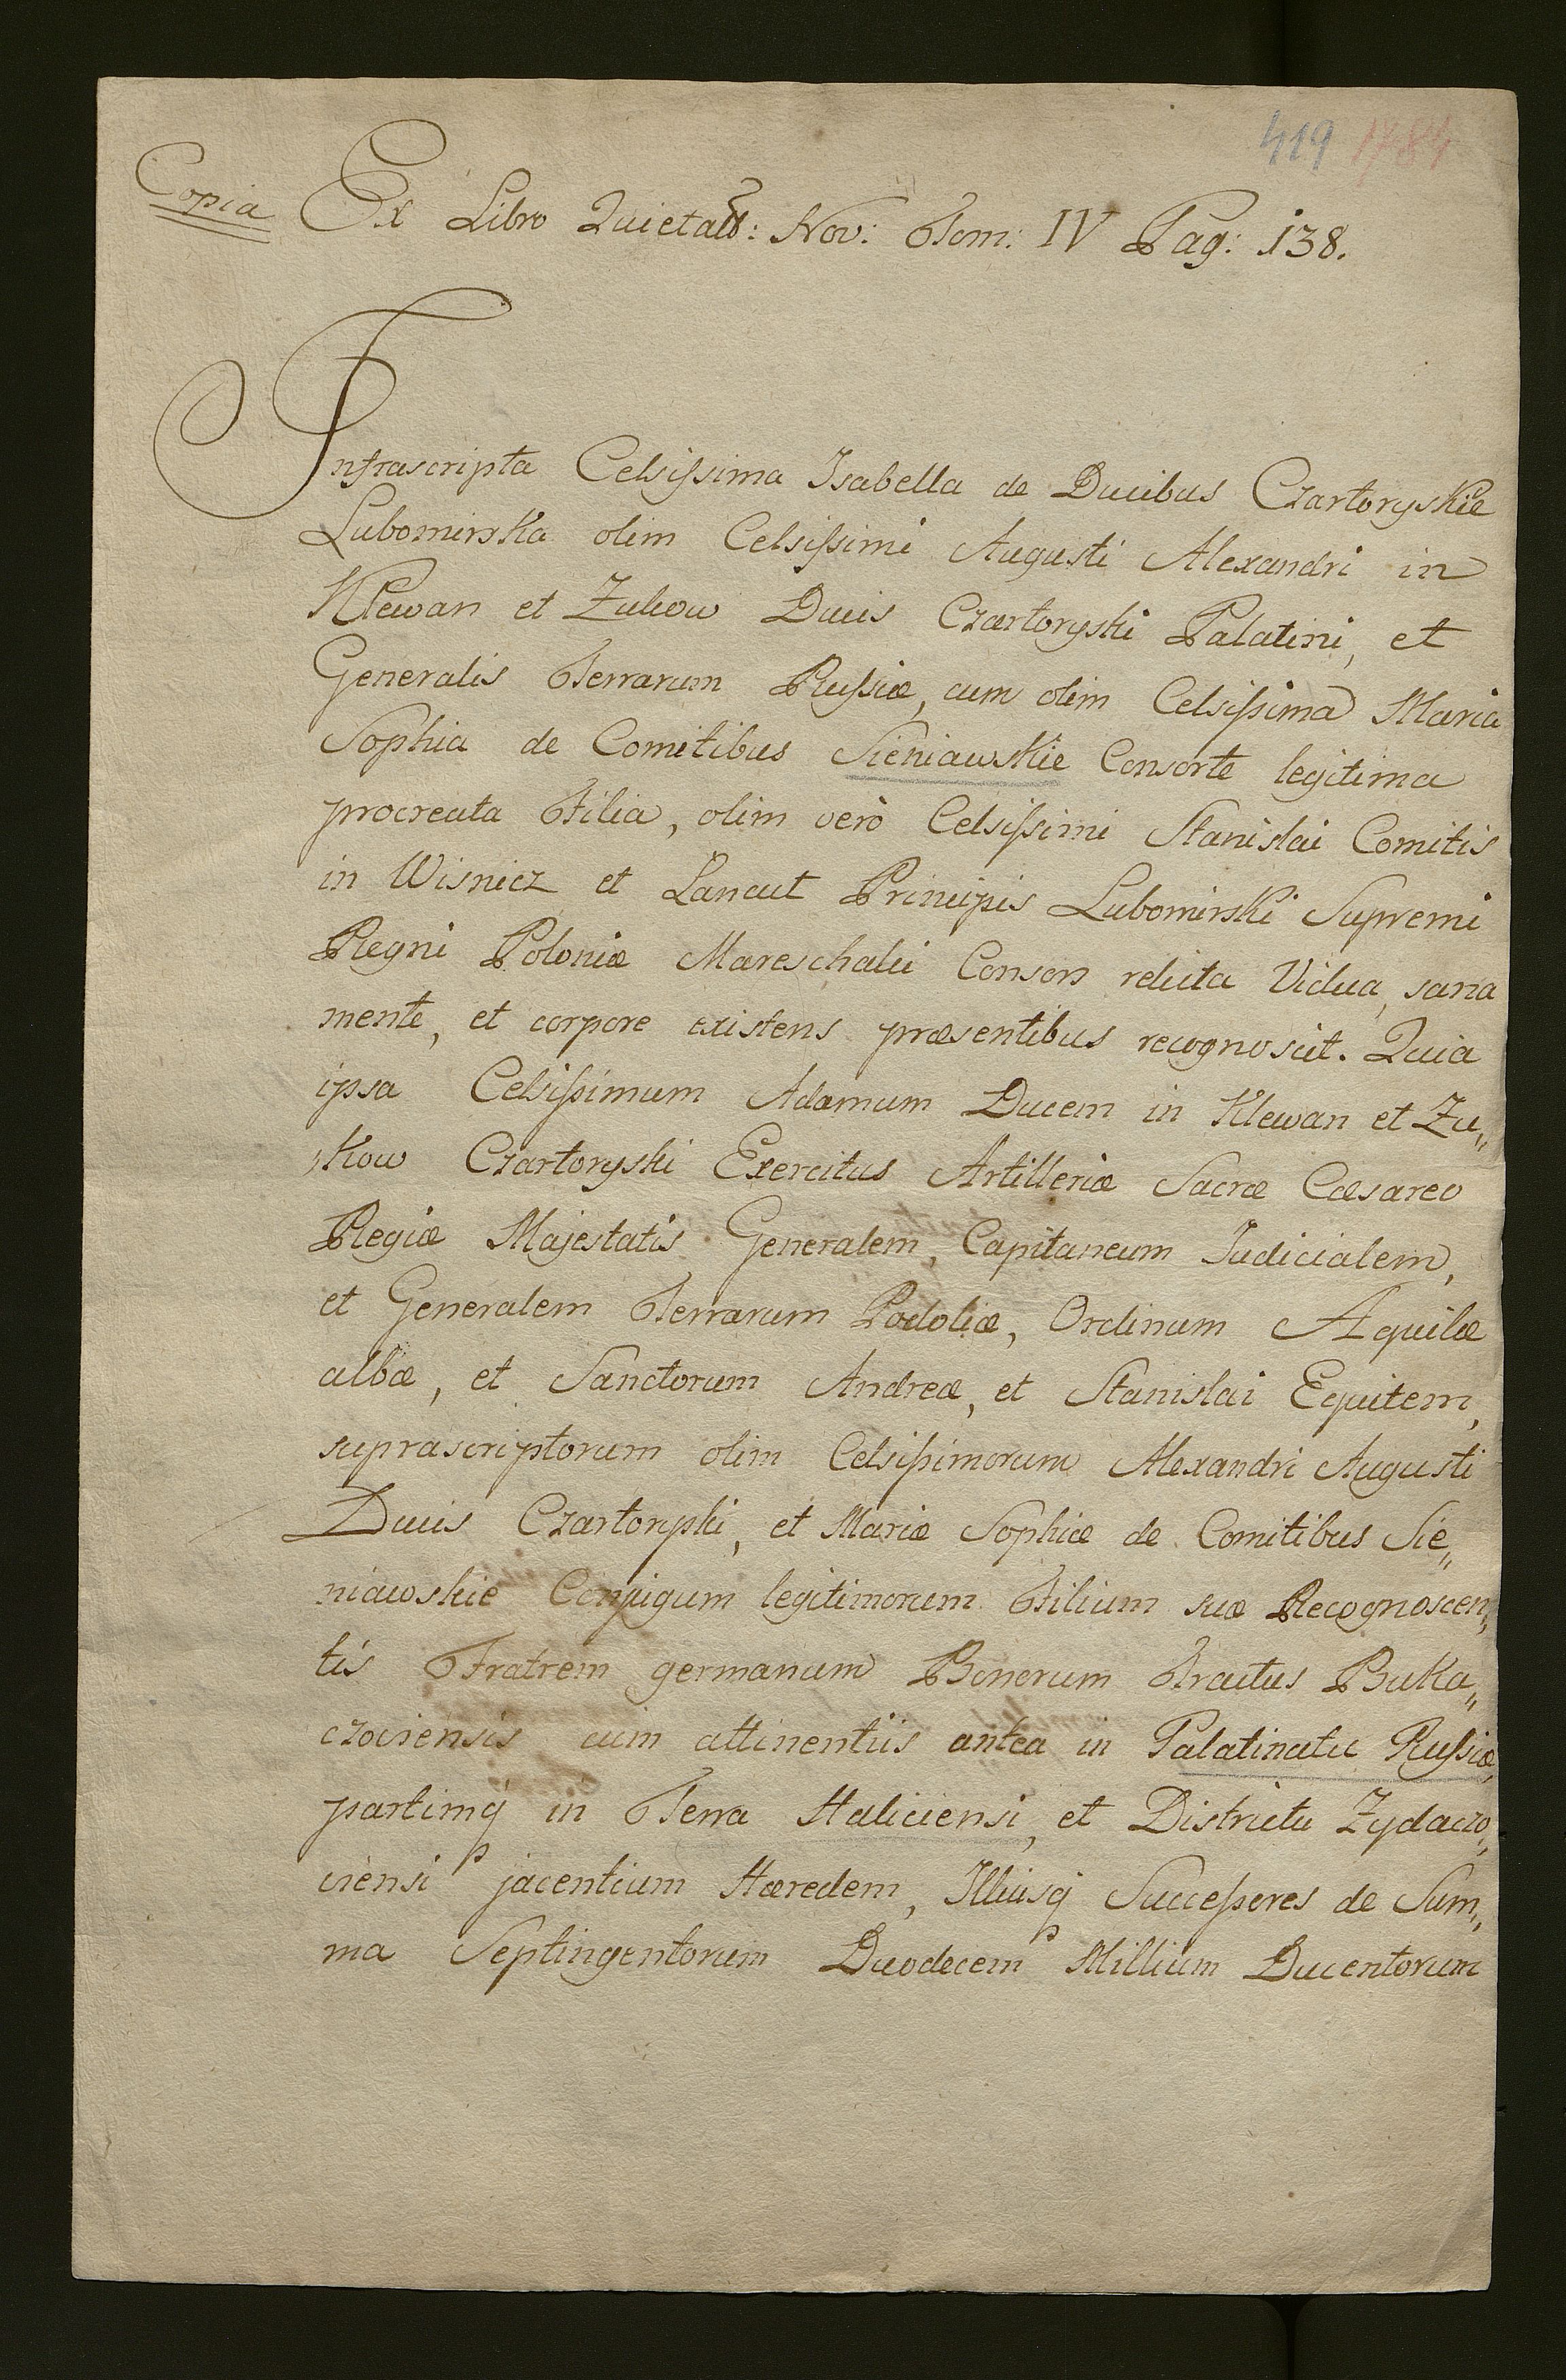 419 1784
Copia Ex Libro Quietat: Nov: Tom: IV Pag: 138.
Infrascripta Celsissima Isabella de Ducibus Czartoryskie
Lubomirska olim Celsissimi Augusti Alexandri in
Klewan et Zukow Ducis Czartoryski Palatini, et
Generalis Terrarum Russiæ, cum olim Celsissima Maria
Sophia de Comitibus Sieniawskie Consorte legitima
procreata Filia, olim verò Celsissimi Stanislai Comitis
in Wisnicz et Lancut Principis Lubomirski Supremi
Regni Poloniæ Mareschalci Consors relicta Vidua, sana
mente, et corpore existens præsentibus recognoscit. Quia
ipsa Celsissimum Adamum Ducem in Klewan et Zu„
„kow Czartoryski Exercitus Artilleriæ Sacræ Cæsareo
Regiæ Majestatis Generalem, Capitaneum Judicialem,
et Generalem Terrarum Podoliæ, Ordinum Aquilæ
albæ, et Sanctorum Andreæ, et Stanislai Equitem,
suprascriptorum olim Celsissimorum Alexandri Augusti
Ducis Czartoryski, et Mariæ Sophiæ de Comitibus Sie„
niawskie Conjugum legitimorum Filium suæ Recognoscen„
tis Fratrem germanum Bonorum Tractus Buka„
czoviensis cum attinentiis antea in Palatinatu Russiæ,
partimq in Terra Haliciensi, et Districtu Zydaczo„
viensi jacentium Hæredem, Illiusq Successores de Sum„
ma Septingentorum Duodecem Millium Ducentorum